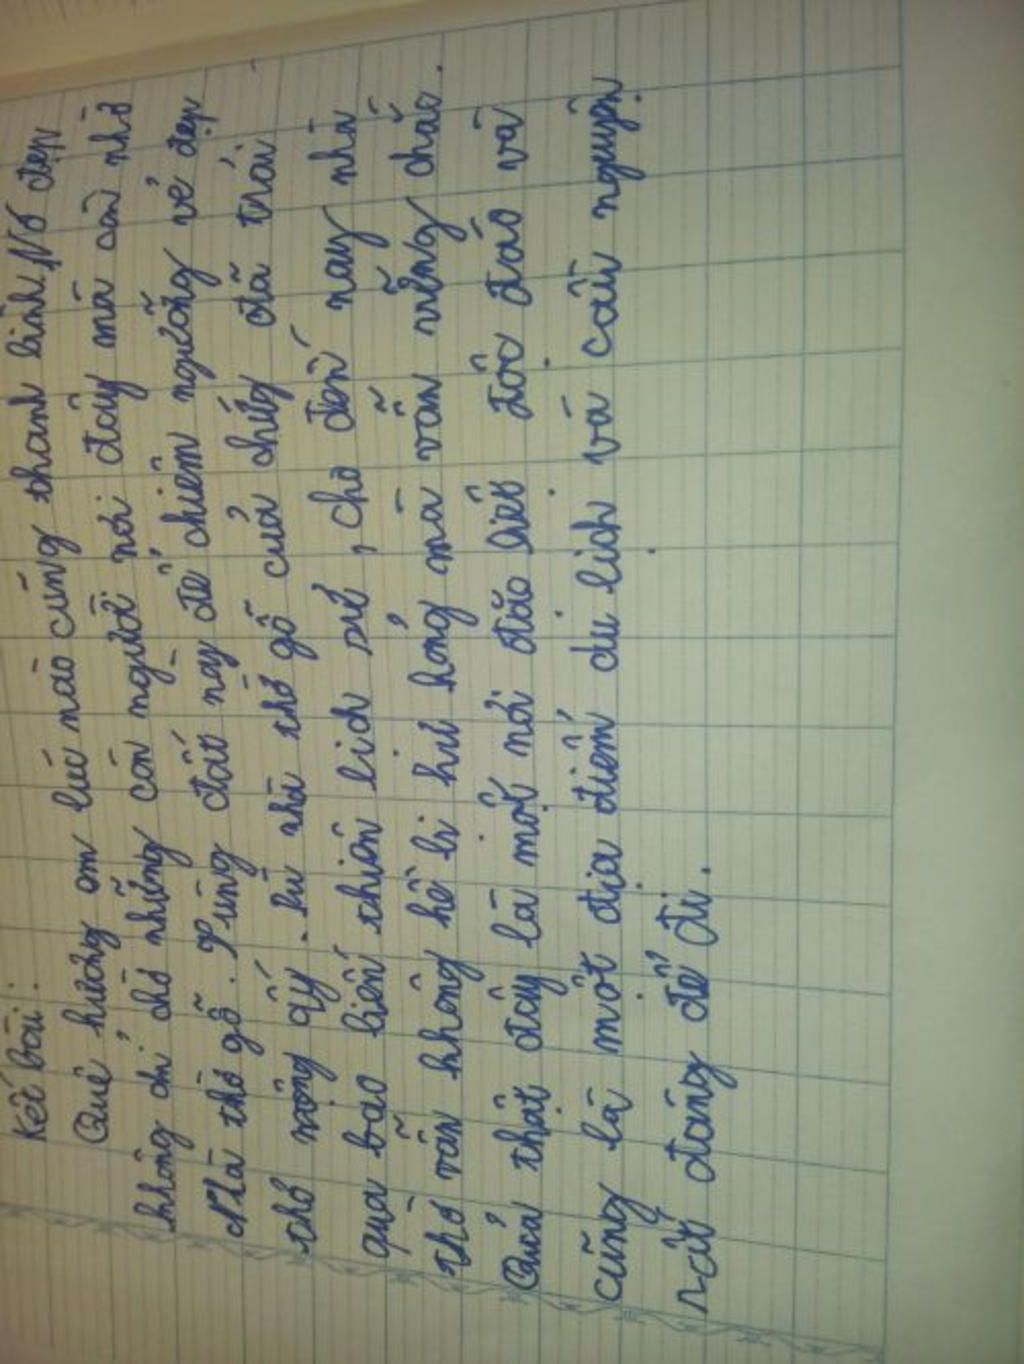 Kết bài:
Quê hương em lúc nào cũng thanh bình. Nó đẹp
không chỉ chờ những con người nơi đây mà còn nhờ
Nhà thờ gỗ. Từng đất này để chiêm ngưỡng vẻ đẹp
thơ mộng ấy. nhà thờ gỗ của chúng đã trải
qua bao biến thiên lich sử, cho đến nay nhà
thờ vẫn không hề bị hư hỏng mà vẫn vững chắc.
Quả thật đây là một nơi đặc biệt độc đáo và
cũng là một địa điểm du lịch và cầu nguyện
rất đáng để đi.